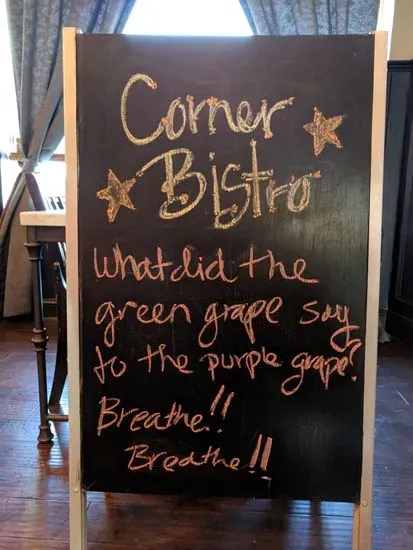 Corner
Bistro
What did the
green grape say
to the purple grape?
Breathe!!
Breathe!!